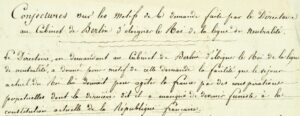 Conjectures sur les motifs de la demande faite par le Directoire
au Cabinet de Berlin d'éloigner le Roi de la ligne de neutralité.
Le Directoire, en demandant au Cabinet de Berlin d'éloigner le Roi de la ligne
de neutralité, a donné pour motif de cette demande la facilité que le séjour
actuel du Roi lui donnait pour agiter la France par des conspirations
perpétuelles dont la dernière, dit-il, a manqué de devenir funeste à la
constitution actuelle de la République française.